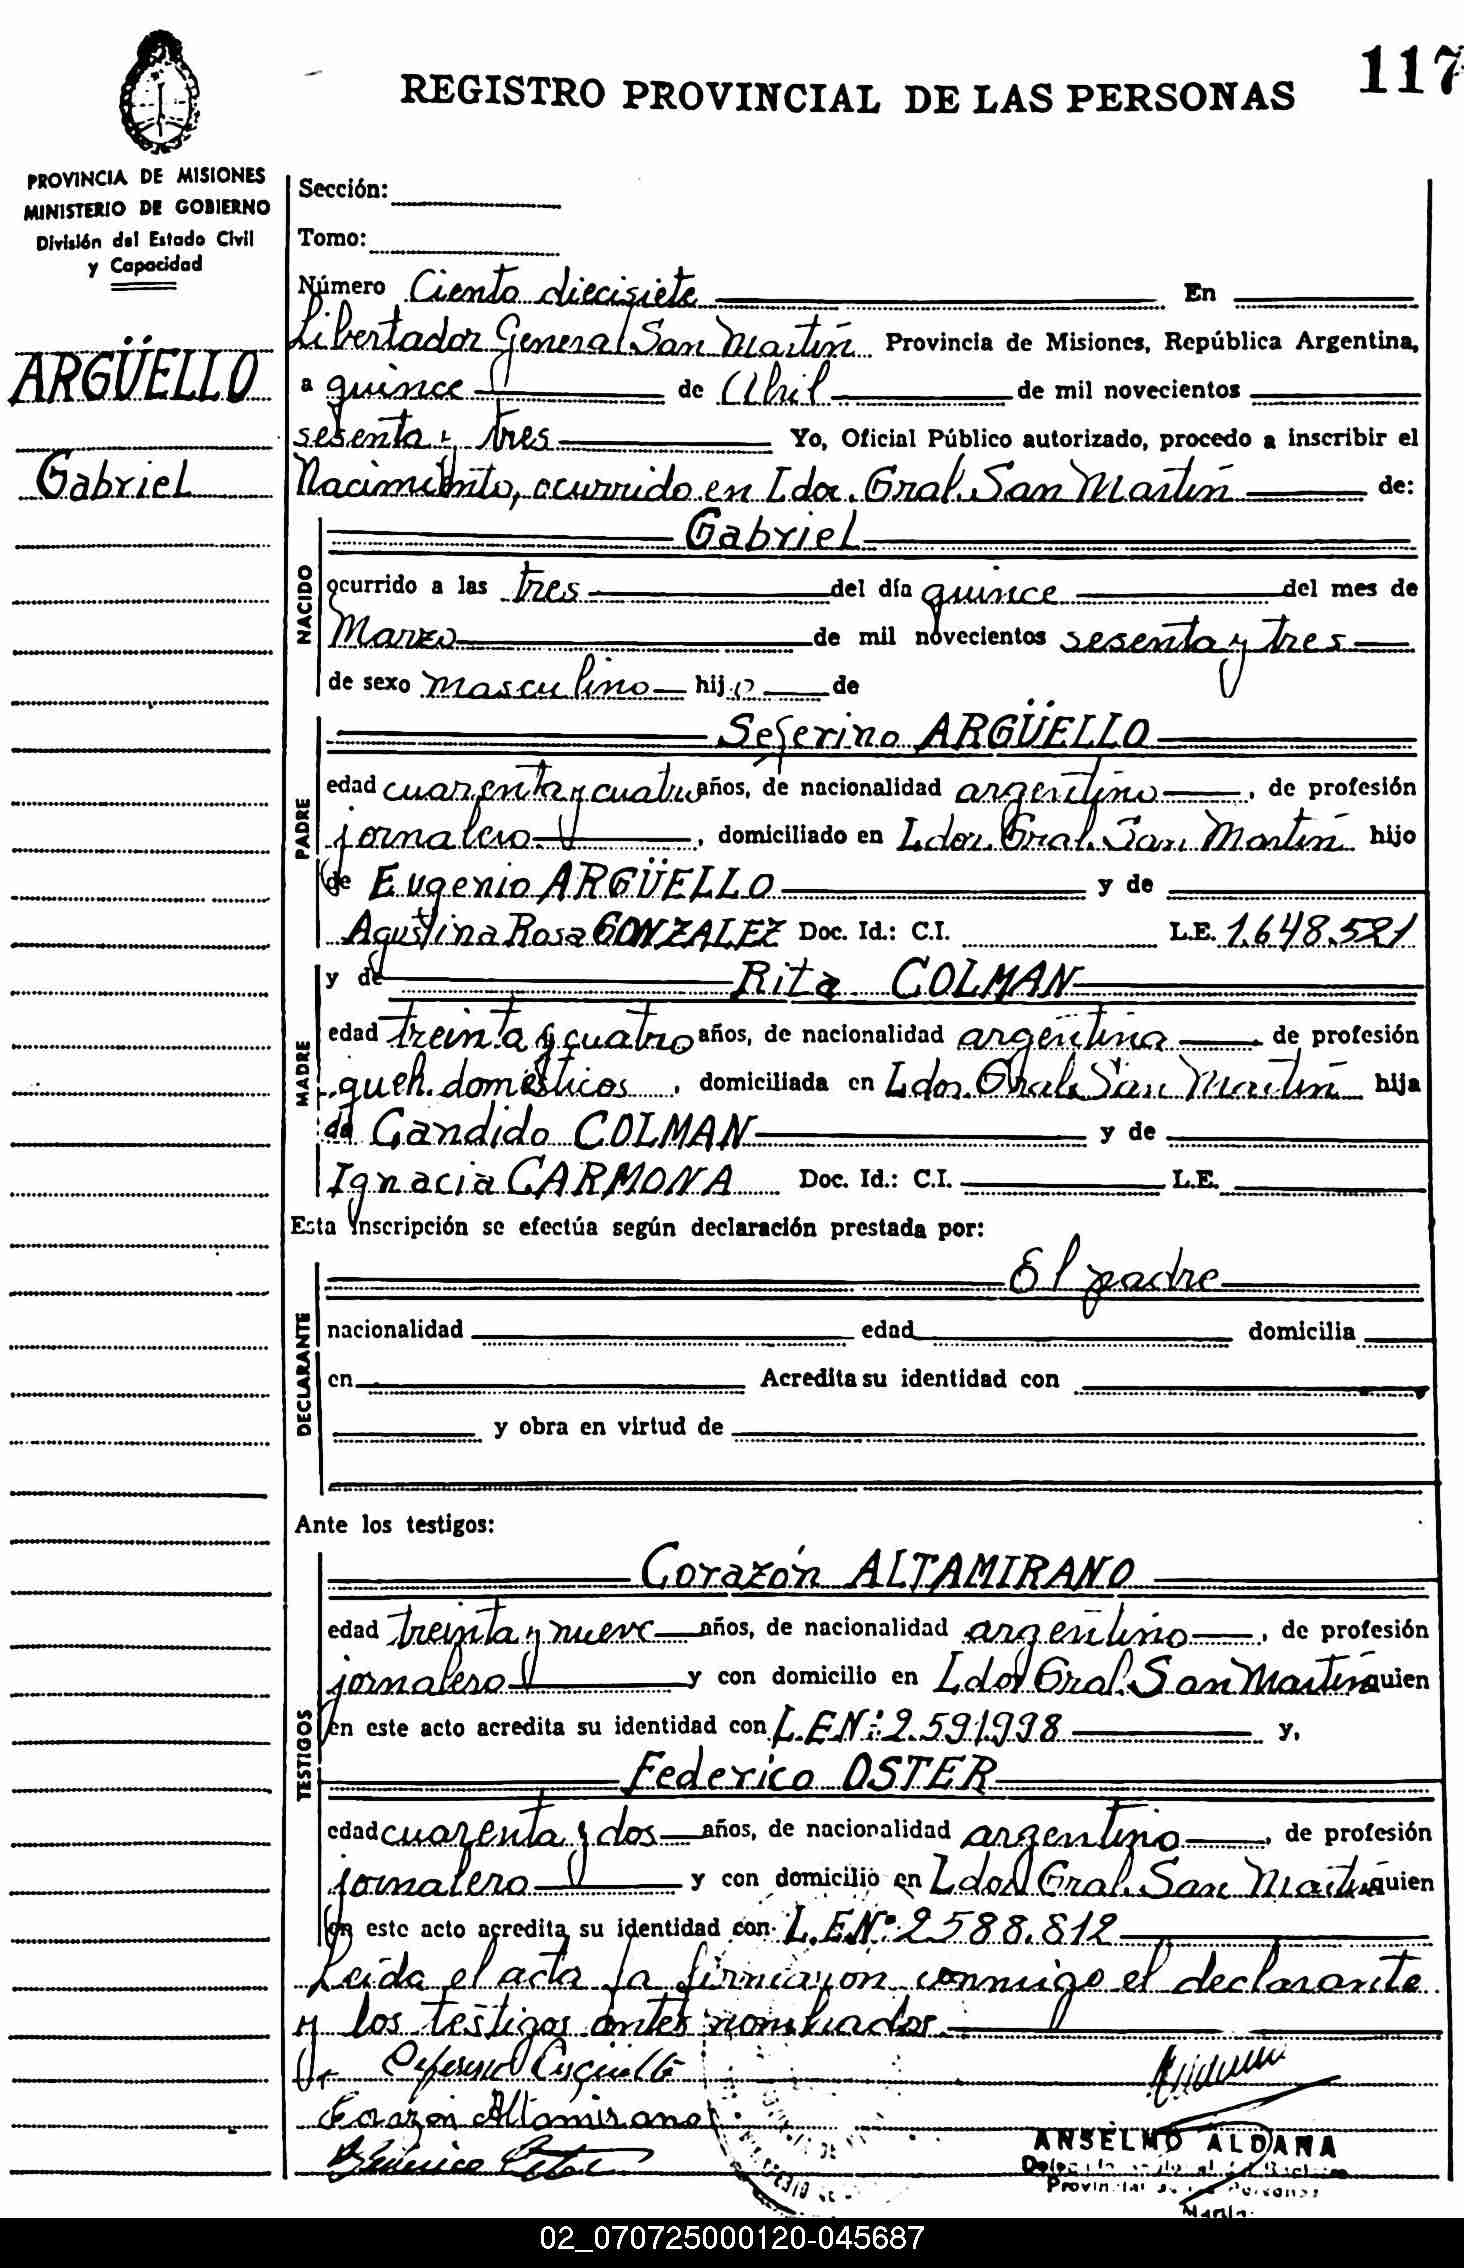 REGISTRO PROVINCIAL DE LAS PERSONAS
117
PROVINCIA DE MISIONES
MINISTERIO DE GOBIERNO
División del Estado Civil
y Capacidad
ARGÜELLO
Gabriel
Sección:
Tomo:
Número Ciento diecisiete En
Libertador General San Martín Provincia de Misiones, República Argentina,
a quince de Abril de mil novecientos
sesenta y tres Yo, Oficial Público autorizado, procedo a inscribir el
Nacimiento, ocurrido en Ldor. Gral. San Martín de:
NACIDO
Gabriel
ocurrido a las tres del día quince del mes de
Marzo de mil novecientos sesenta y tres
de sexo masculino hijo de
PADRE
Seferino ARGÜELLO
edad cuarenta y cuatro años, de nacionalidad argentino, de profesión
jornalero, domiciliado en Ldor. Gral. San Martín hijo
de Eugenio ARGÜELLO y de
Agustina Rosa GONZALEZ Doc. Id.: C.I. L.E. 1.648.521
MADRE
y de Rita COLMAN
edad treinta y cuatro años, de nacionalidad argentina de profesión
queh. domésticos, domiciliada en Ldor. Gral. San Martín hija
de Candido COLMAN y de
Ignacia CARMONA Doc. Id.: C.I. L.E.
Esta inscripción se efectúa según declaración prestada por:
DECLARANTE
El padre
nacionalidad edad domicilia
en Acredita su identidad con
y obra en virtud de
Ante los testigos:
TESTIGOS
Corazón ALTAMIRANO
edad treinta y nueve años, de nacionalidad argentino, de profesión
jornalero y con domicilio en Ldor Gral. San Martín quien
en este acto acredita su identidad con L.E.Nº: 2.591.998 y,
Federico OSTER
edad cuarenta y dos años, de nacionalidad argentino, de profesión
jornalero y con domicilio en Ldor Gral. San Martín quien
en este acto acredita su identidad con L.E.Nº: 2.588.812
Leída el acta la firmaron conmigo el declarante
y los testigos antes nombrados.
Corazon Altamirano
ANSELMO ALDANA
Provincial de las Personas
02_070725000120-045687